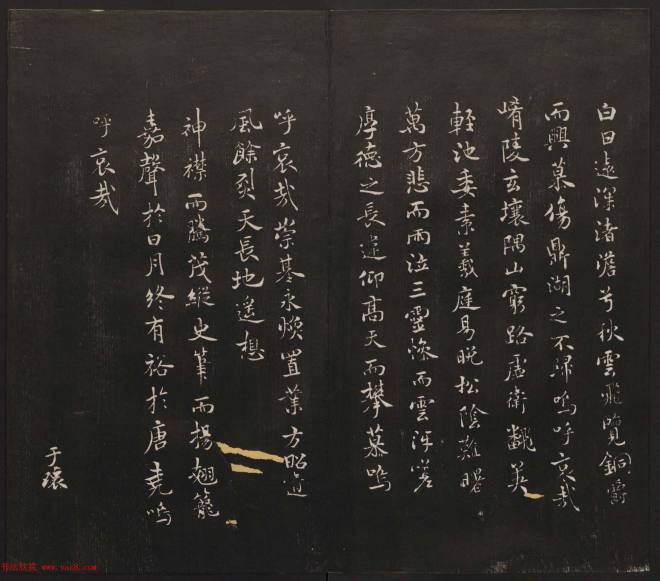 白日遠深渚澹兮秋雲飛覽銅爵
而興慕傷鼎湖之不歸嗚呼哀哉
崤陵玄壤隅山窮路虛衛翻
輕池委素羲庭易晚松陰難曙
萬方悲而雨泣三靈慘而雲泮嗟
厚德之長違仰高天而攀慕嗚
呼哀哉崇基永煥置業方昭道
風餘烈天長地遙想
神襟而騰茂縱史筆而揚翹籠
嘉聲於日月終有裕於唐堯嗚
呼哀哉
于璟
书法欣赏 www.yac8.com